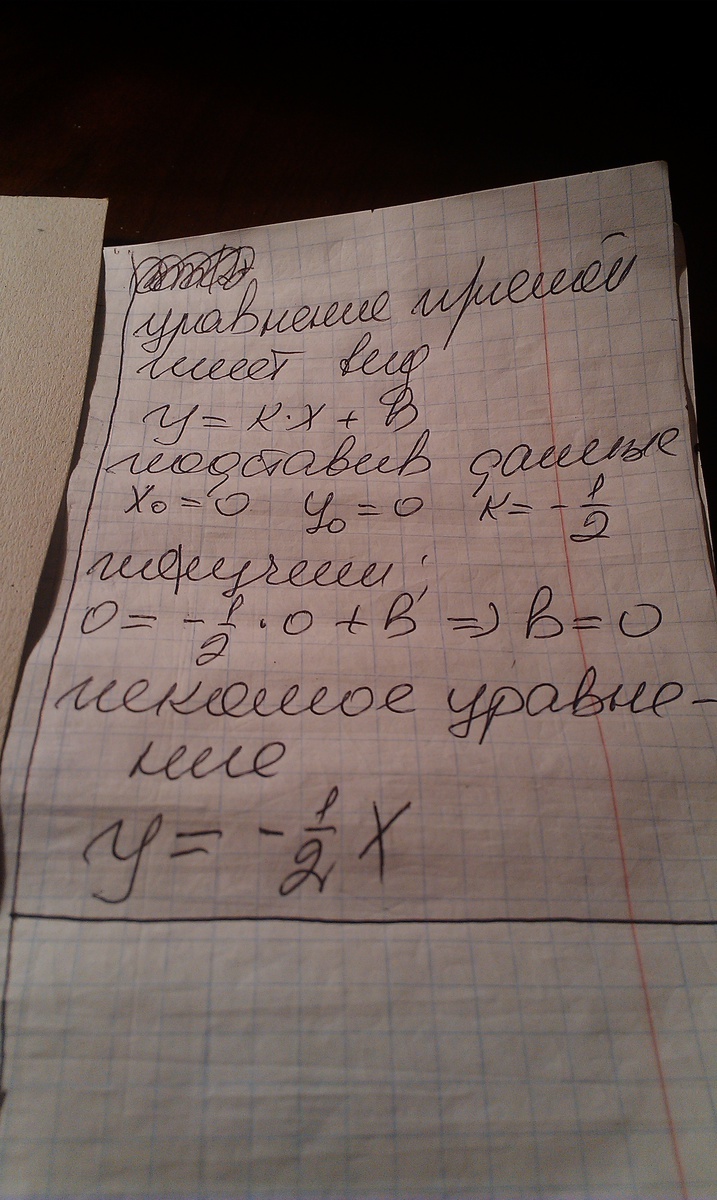 уравнение прямой
имеет вид
y = k·x + B
подставив данные
x₀ = 0 y₀ = 0 k = -1/2
получим:
0 = -1/2 · 0 + B => B = 0
искомое уравне-
ние
y = -1/2 x